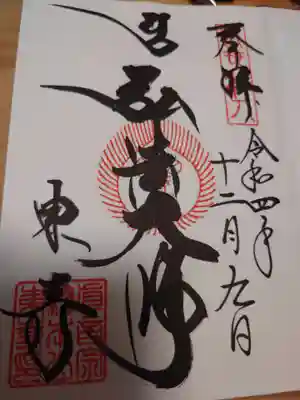 奉拝
令和四年
十二月九日
弘法大師
東寺